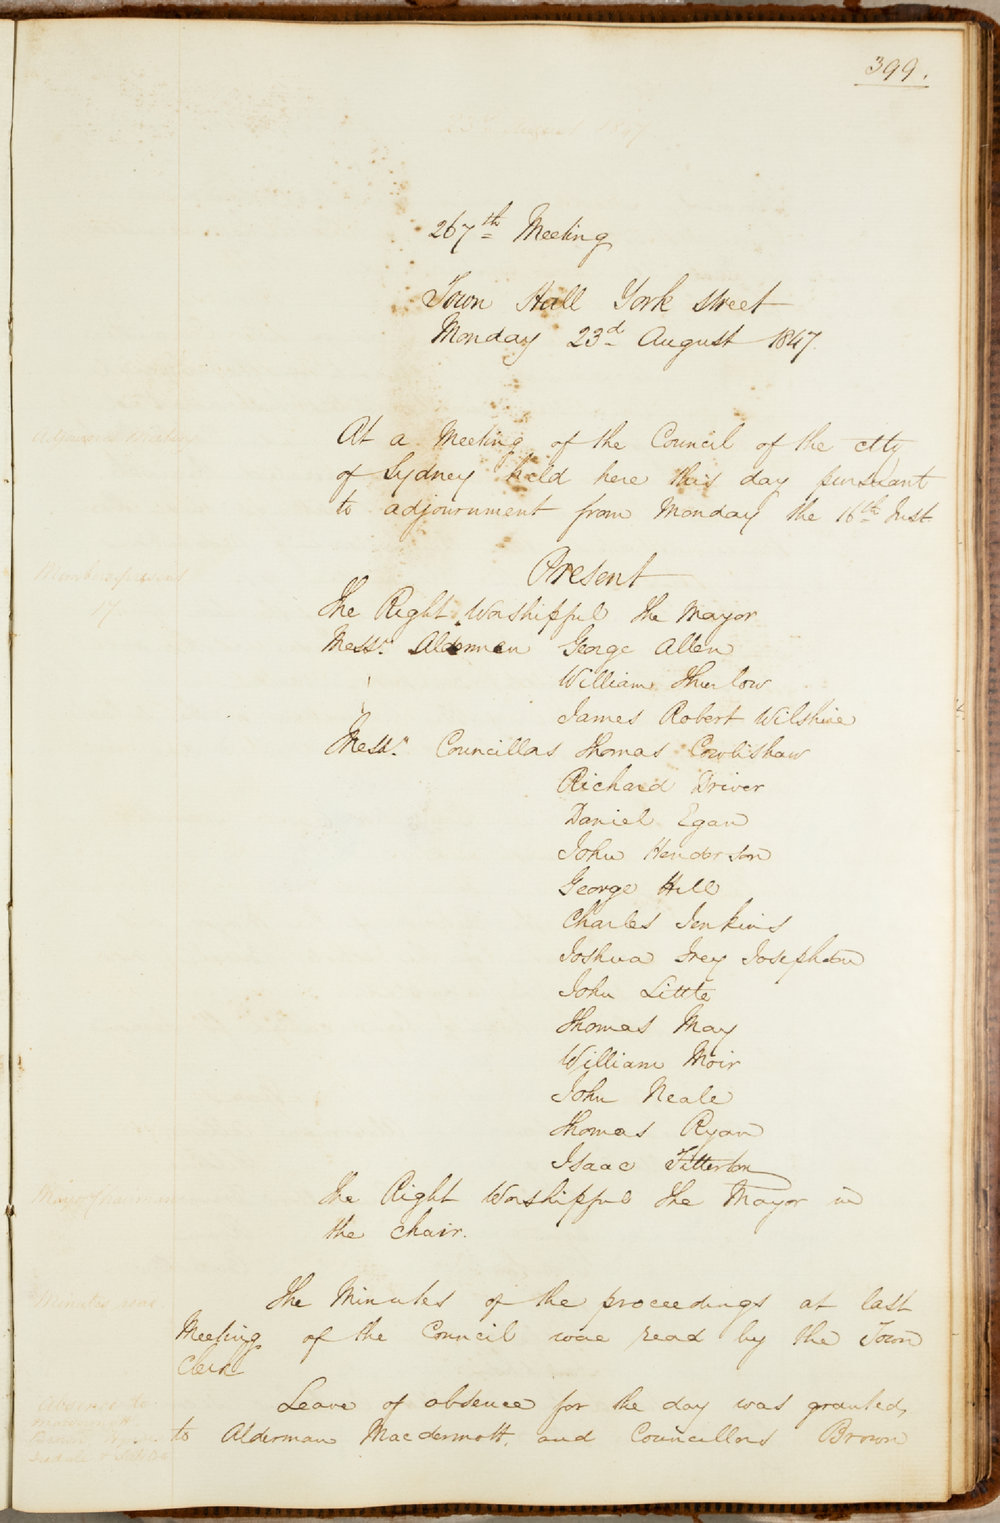 399.
23rd August 1847
267th Meeting
Town Hall York street
Monday 23d August 1847.
Adjourned Meeting
At a Meeting of the Council of the city
of Sydney held here this day pursuant
to adjournment from Monday the 16th Inst
Present
Members present
17
The Right Worshipful the Mayor
Messrs. Aldermen George Allen
William Thurlow
James Robert Wilshire
Messrs. Councillors Thomas Cowlishaw
Richard Driver
Daniel Egan
John Henderson
George Hill
Charles Jenkins
Joshua Frey Josephson
John Little
Thomas May
William Moir
John Neale
Thomas Ryan
Isaac Titterton
Mayor Chairman
The Right Worshipful the Mayor in
the Chair.
Minutes read.
The Minutes of the proceedings at last
Meeting of the Council were read by the Town
Clerk
Absence to
Macdermott
Leave of absence for the day was granted,
to Alderman Macdermott, and Councillors Brown